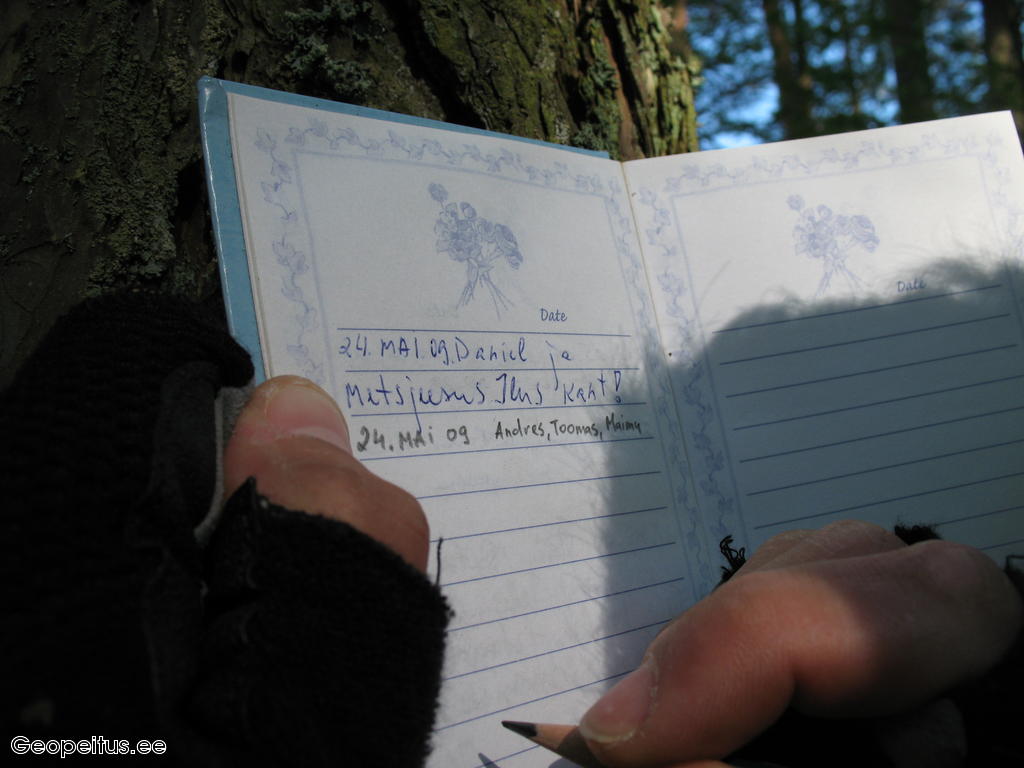 Date
Date
24. MAI 09. Daniel ja
Metsjeesus. Ilus Kant!
24. MAi 09 Andres, Toomas, Maimu
Geopeitus.ee